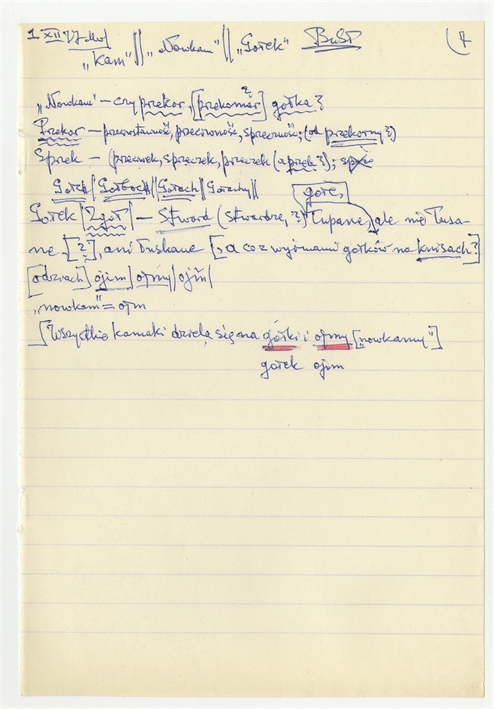 1 XII
„Kam" || „Nowkam" || „Gołek" BuSł
„Nowkam" – czy przekor, [przekomar] gołka?
Przekor – przeciwstawność, przeciwność, sprzeczność; (od przekorny?)
Sprzek – (przeciwek, sprzeczek, przeczek (a przek?);
Gołek | Gołbock || Gołach | Gołachy ||
gołe,
Gołek | Zgoł | – Stward (stwardzę, ?) Łupane, ale nie Łusa-
ne [?], ani łuskane [, a co z wyjmami gołków na knisach?]
[odzirach] ojim | ojmy | ojm |
„nowkam" = ojm
[Wszystkie kamaki dzielą się na gołki i ojmy [nowkamy"]
gołek ojim